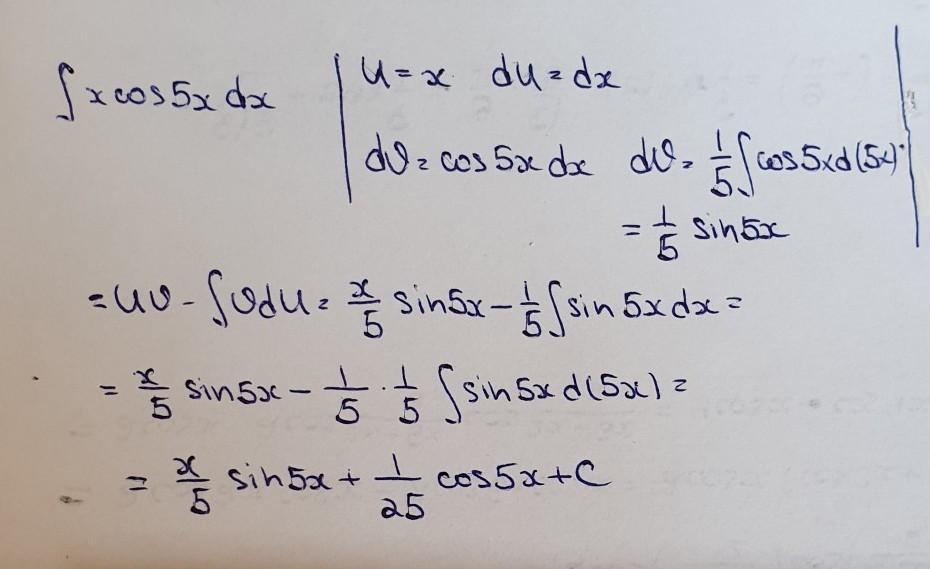 ∫x cos 5x dx | u = x du = dx
dv = cos 5x dx dv = 1/5 ∫cos 5x d(5x) |
= 1/5 sin 5x
= uv - ∫v du = x/5 sin 5x - 1/5 ∫sin 5x dx =
= x/5 sin 5x - 1/5 · 1/5 ∫sin 5x d(5x) =
= x/5 sin 5x + 1/25 cos 5x + C